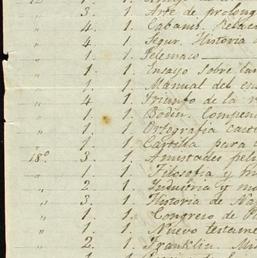 " 3. 1. Arte de prolong
" 4. 1. Cabanis. Relac
" 4. 1. Segur. Historia
" 1. 1. Telemaco
" 1. 1. Ensayo sobre las
" 1. 1. Manual del
" 4. 1. Triunfo de la
" 1. 1. Bodin. Compen
" 1. 1. Ortografia cast
" 1. 1. Cartilla para
18º 3. 1. Amistades peli
" 1. 1. Filosofia y
" 2. 1. Industria y mo
" 3. 1. Historia de Na
" 1. 1. Congreso de P
" 1. 1. Nuevo testame
" 2. 1. Franklin. Mis